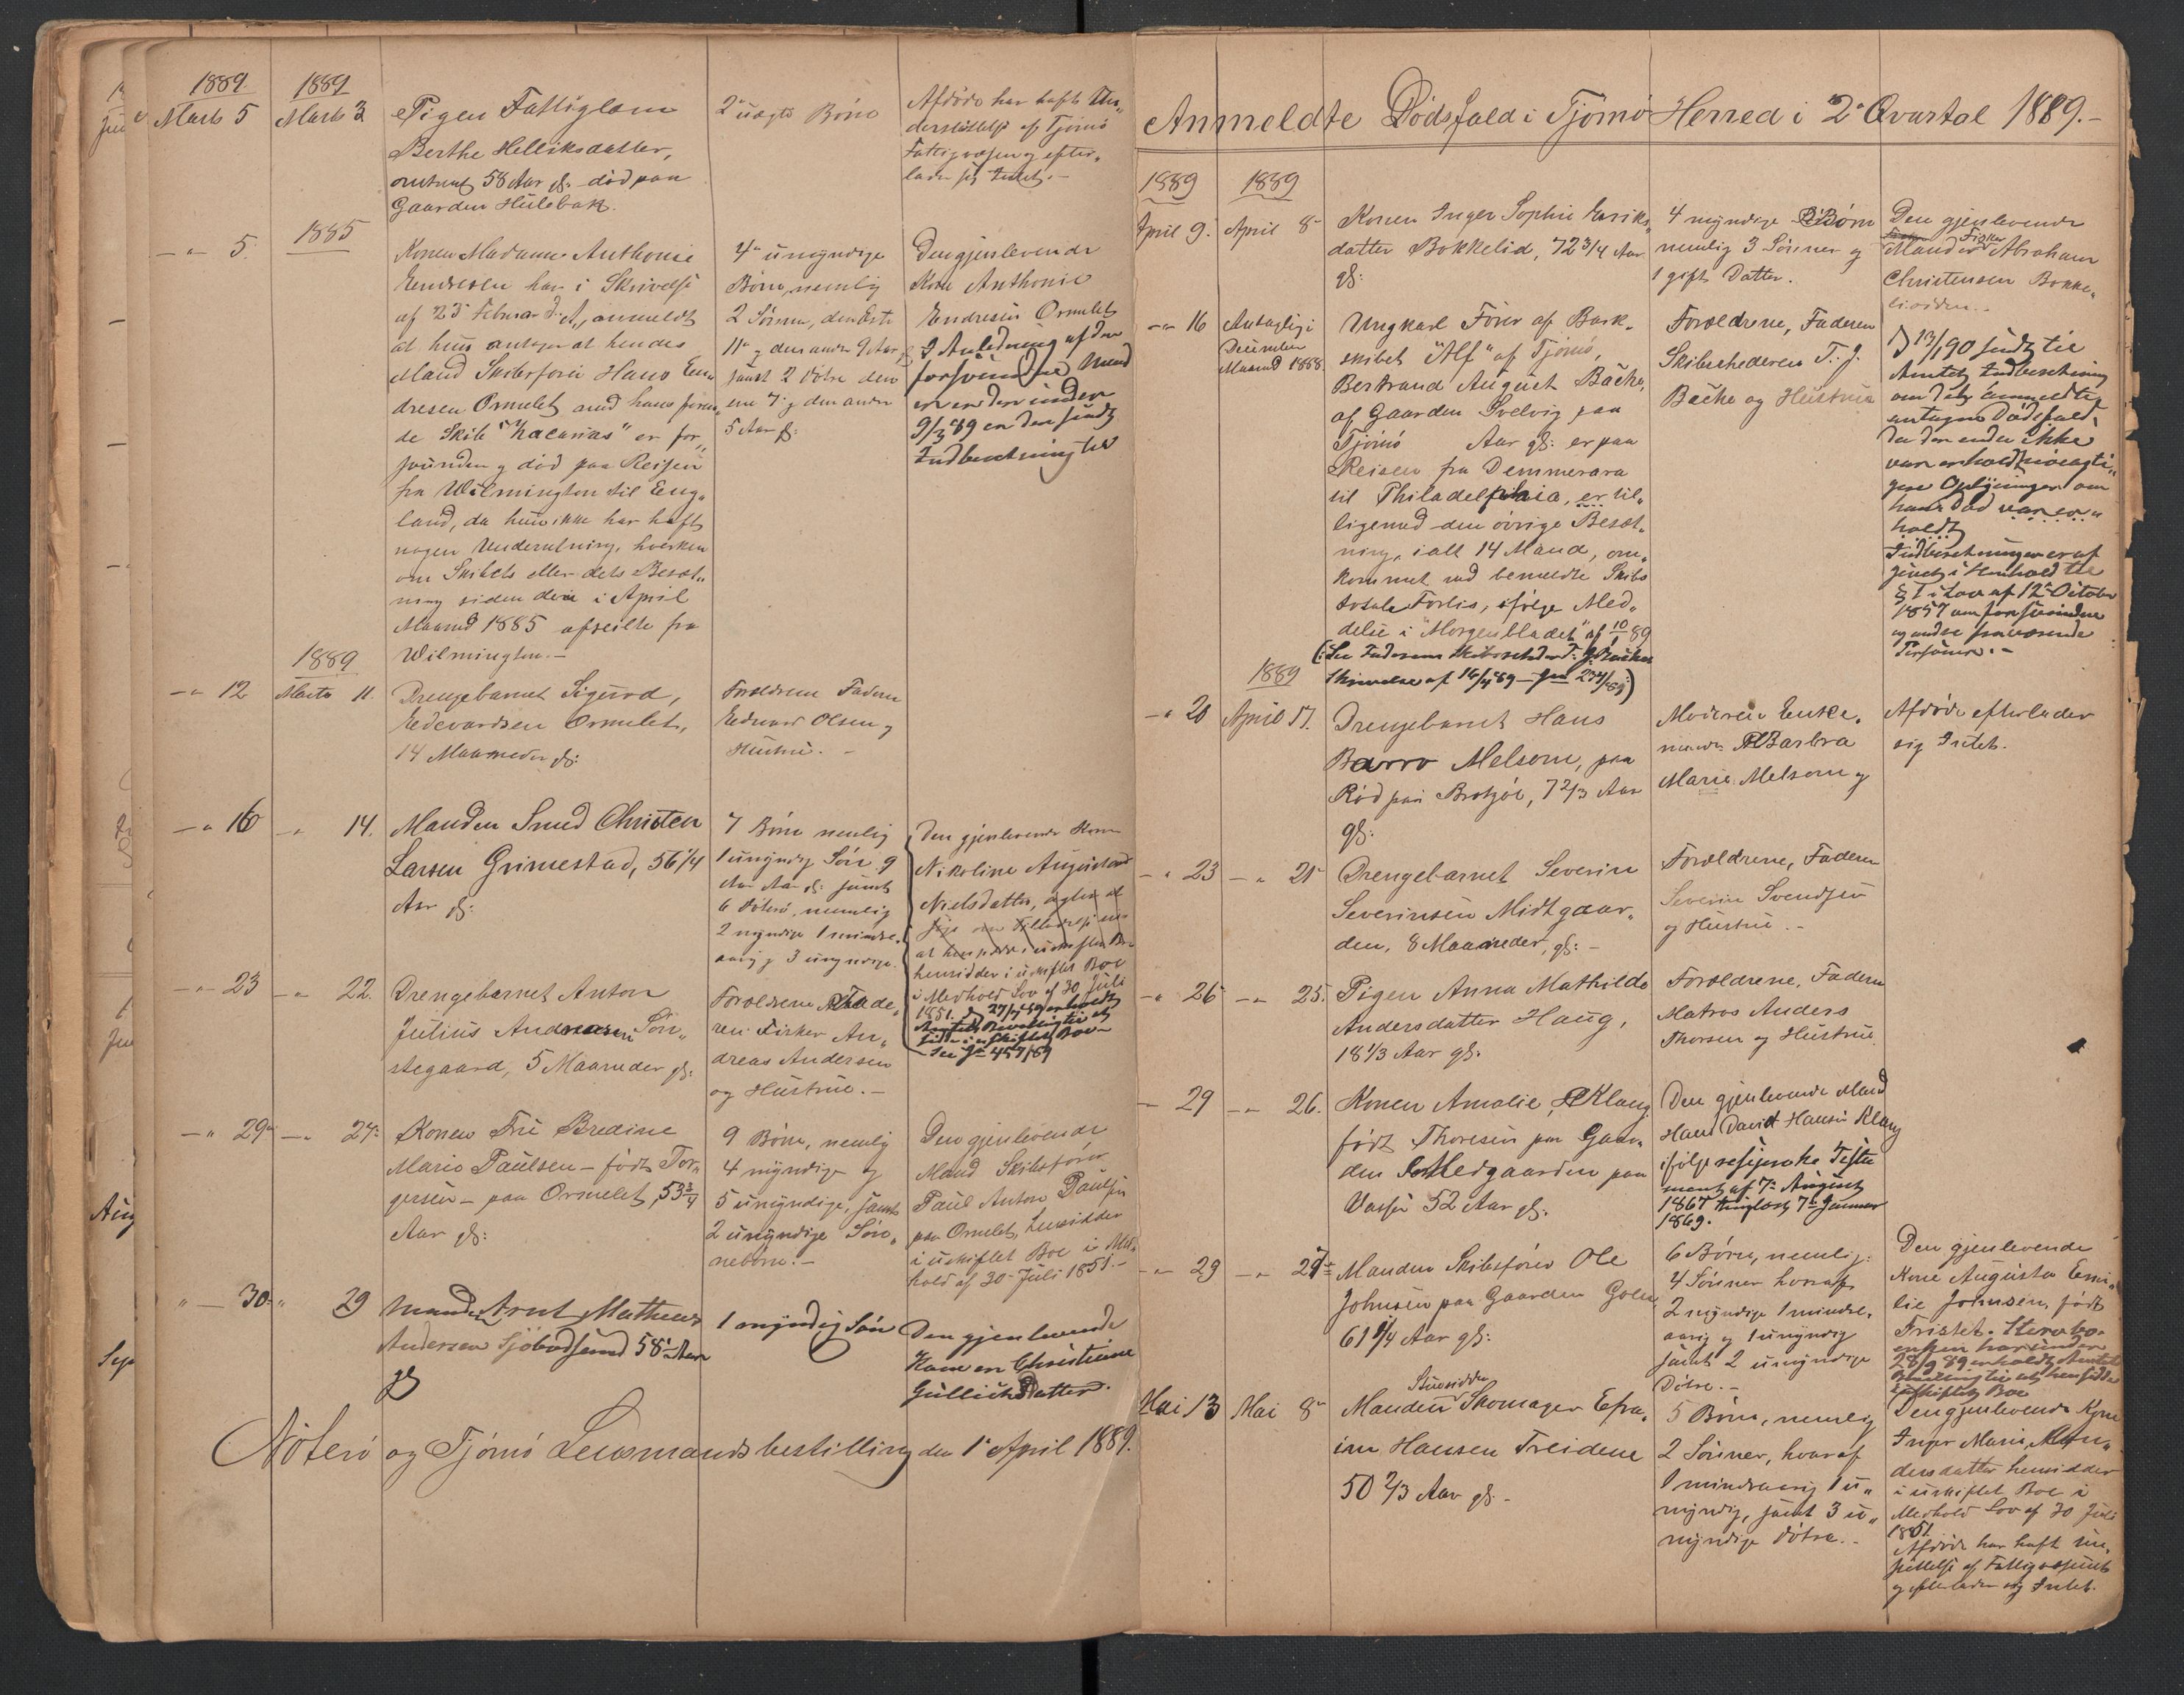 1889.
Marts 5
1889
Marts 3
Pigen Fattiglem
Berthe Helliksdatter,
omtrent 58 Aar gl. død paa
Gaarden Hulebak.
2 uægte Børn
Afdøde har haft Un„
derstøttelse af Tjømø
Fattigvæsen og efter„
lader sig Intet.–
– „ 5.
1885
Konen Madame Anthonie
Endresen har i Skrivelse
af 25 Februar d. A. anmeldt
at hun antager at hendes
Mand Skibsfører Hans En„
dresen Ormelet med hans føren„
de Skib "Zacarias" er for„
svunden og død paa Reisen
fra Wilmington til Eng„
land, da hun ikke har haft
nogen Underretning, hverken
om Skibets eller dets Besæt„
ning siden den i April
Maaned 1885 afseilte fra
Wilmington.–
4 umyndige
Børn, nemlig
2 Sønner, den Ene
11 og den anden 9 Aar gl.
samt 2 Døtre den
ene 7 og den anden
5 Aar gl.
Den gjenlevende
Kone Anthonie
Endresen Ormelet
I Anledning af den
forsvundne Mand
er er den under
9/3 89 en den sendt
Indberetning til
– „ 12
1889
Marts 11.
Drengebarnet Sigurd,
Edevardsen Ormelet,
14 Maaneder gl:
Forældrene Faderen
Edvard Olsen og
Hustru. –
– „ 16
– „ 14.
Manden Smed Christen
Larsen Grimestad, 56 1/4
Aar gl:
7 Børn nemlig
1 umyndig Søn 9
Aar gl: samt
6 Døtre, nemlig
2 myndige 1 mindre„
aarig og 3 umyndige.
Den gjenlevende Kone
Nikoline
Nielsdatter, agter at
hensidder i uskiftet Boe
i Medhold Lov af 30 Juli
1851. D 27/7 89 erholdt
Amtets Bevilling til at
sidde i uskiftet Boe–
See Jr 457/89
– „ 23
– „ 22.
Drengebarnet Anton
Julius Andreasen Søn„
stegaard, 5 Maaneder gl:
Forældrene Fade„
ren Fisker An„
dreas Andersen
og Hustru.–
– „ 29
– „ 27.
Konen Fru Bredine
Marie Paulsen – født Tor„
gersen – paa Ormelet, 53 3/4
Aar gl:
9 Børn, nemlig
4 myndige og
5 umyndige, samt
2 umyndige Søn„
nebørn.–
Den gjenlevende
Mand Skibsfører
Paul Anton Paulsen
paa Ormelet, hensidder
i uskiftet Boe i Med„
hold af 30 Juli 1851.–
„ – 30
„ 29
Manden Arnt Mathias
Andersen Sjøbodsund 58 Aar
gl
1 myndig Søn
Den gjenlevende
Kone er Christine
Gullichsdatter.
Nøterø og Tjømø Lensmandsbestilling den 1 April 1889.
Anmeldte Dødsfald i Tjømø Herred i 2 Qvartal 1889.–
1889
April 9.
1889
April 8
Konen Inger Sophie Eriks„
datter Bokkelid, 72 3/4 Aar
gl:
4 myndige Børn
nemlig 3 Sønner og
1 gift Datter.
Den gjenlevende
Mand er Fisker Abraham
Christensen Bokke„
lidden.
– „ 16
Antagelig i
December
Maaned 1888.
Ungkarl Fører af Bark„
skibet "Alf" af Tjømø,
Bertrand August Bache,
af Gaarden Svelvig paa
Tjømø Aar gl: er paa
Reisen fra Demmerara
til Philadelphia, er til„
ligemed den øvrige Besæt„
ning, i alt 14 Mand, om„
kommet ved bemeldte Skibs
totale Forlis, ifølge Med„
delse i "Morgenbladet" af 10/1 89
(: See Faderens Skibsreder T. J. Backes
Skrivelse af 14/4 89 – Jnr 234/89)
Forældrene, Faderen
Skibsrhederen T. J.
Bache og Hustru
D 13/1 90 sendt til
Amtet Indberetning
om dette anmeldte
antagne Dødsfald,
da der endu ikke
var erholdt nøiagti„
gere Oplysninger om
hans Død var er„
holdt
Indberetningen er af
givet i Henhold til
§ 1 i Lov af 12 October
1857 om forsvundne
og andre fraværende
Personer.–
– „ 20
1889
April 17.
Drengebarnet Hans
Barro Melsom, paa
Rød paa Brotsø, 7 2/3 Aar
gl:
Moderen Enke„
madam Barbra
Marie Melsom og
Afdøde efterlader
sig Intet.
– „ 23
– „ 21
Drengebarnet Severin
Severinsen Midtgaar„
den, 8 Maaneder, gl:–
Forældrene, Faderen
Severin Svendsen
og Hustru.–
– „ 26
– „ 25.
Pigen Anna Mathilde
Andersdatter Haug,
18 1/3 Aar gl.
Forældrene, Faderen
Matros Anders
Thorsen og Hustru
– 29
– „ 26.
Konen Amalie, Klang
født Thoresen paa Gaar„
den Nedgaarden paa
Vasser 52 Aar gl.
Den gjenlevende Mand
Hans David Hansen Klang
ifølge resiproke Testa
ment af 7 August
1867 tinglæst 7 Januar
1869.
– „ 29
– „ 27
Manden Skibsfører Ole
Johnsen paa Gaarden Golen
61 1/4 Aar gl:
6 Børn, nemlig:
4 Sønner hvoraf
2 myndige 1 mindre„
aarig og 1 umyndig
samt 2 umyndige
Døtre.–
Den gjenlevende
Kone Augusta Emi„
lie Johnsen, født
Fristet. Stervbo„
enken har under
28/9 89 erholdt Amtets
Bevilling til at hensidde
i uskiftet Boe
Mai 13
Mai 8
Manden Skomager Efra„
im Hansen Treidene
50 2/3 Aar gl.–
5 Børn, nemlig
2 Sønner, hvoraf
1 mindreaarig 1 u„
myndig, samt 3 u„
myndige Døtre.–
Den gjenlevende Kone
Inger Marie
dersdatter hensidder
i uskiftet Boe i
Medhold Lov af 30 Juli
1851.
Afdøde har haft un„
støttelse af Fattigvæsenet
og efterlader sig Intet.